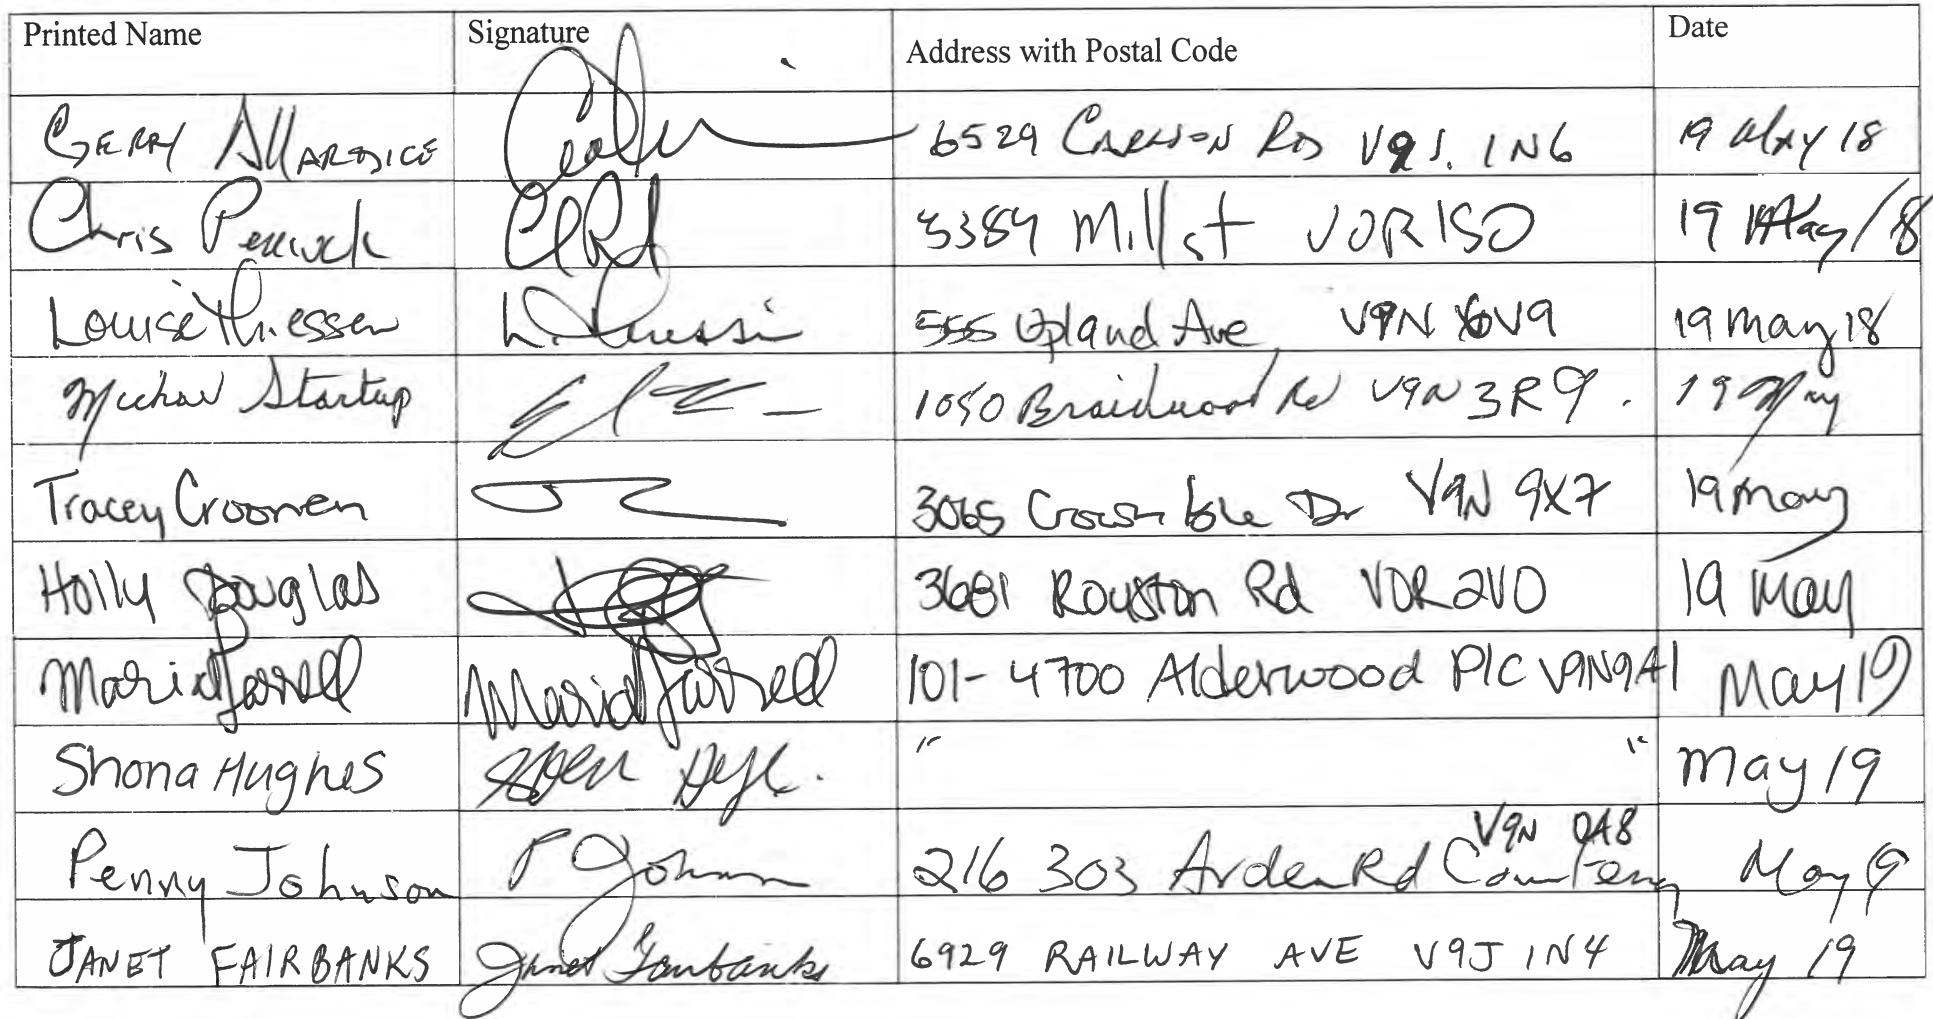 Printed Name Signature Address with Postal Code Date
GERRY ALLARDICE 6529 CARLSON RD V9J. 1N6 19 May 18
Chris 3384 Mill st V0R1S0 19 May/18
Louise Thiessen L. Thiessen 555 Upland Ave V9N 6V9 19 May 18
Michael Startup 1050 Braidwood Rd V9N 3R9. 19 May
Tracey Croonen 3065 Dr V9N 9X7 19 May
Holly Douglas 3681 Royston Rd V0R2V0 19 May
Maria Farrell Maria Farrell 101-4700 Alderwood Plc V9N9A1 May 19
Shona Hughes " " May 19
Penny Johnson P Johnson 216 303 Arden Rd Courtenay V9N 0A8 May 19
JANET FAIRBANKS Janet Fairbanks 6929 RAILWAY AVE V9J 1N4 May 19